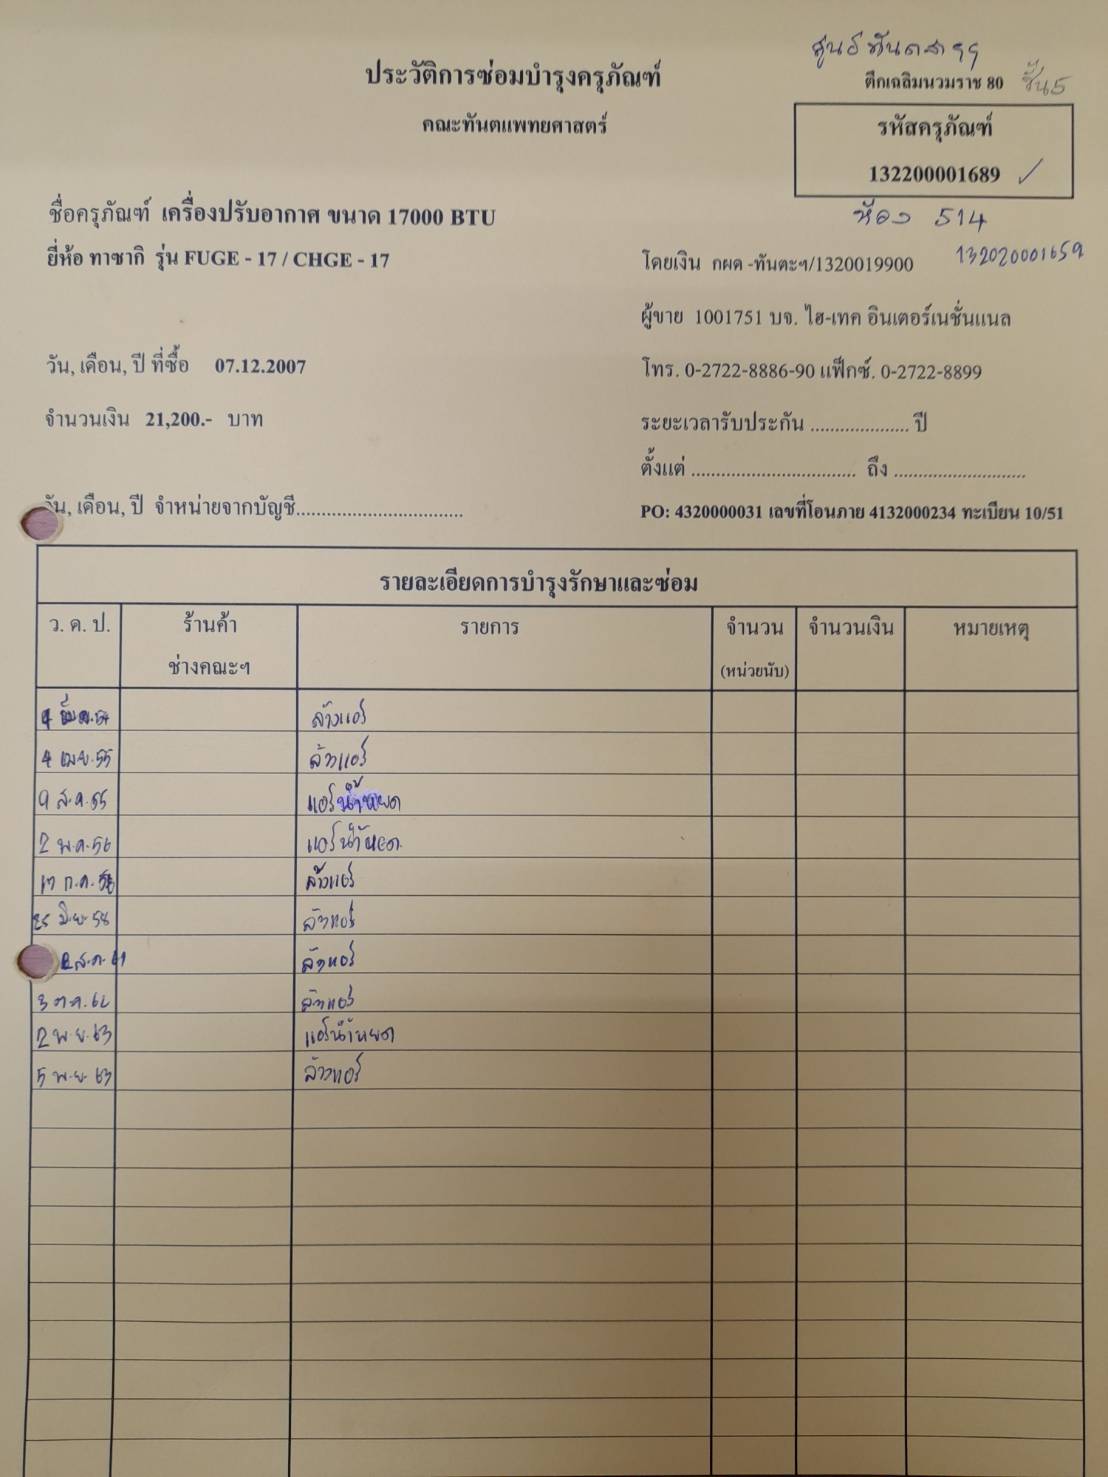 ศูนย์ทันตสาฯ
ประวัติการซ่อมบำรุงครุภัณฑ์
ตึกเฉลิมนวมราช 80 ชั้น5
คณะทันตแพทยศาสตร์
รหัสครุภัณฑ์
132200001689 ✓
ชื่อครุภัณฑ์ เครื่องปรับอากาศ ขนาด 17000 BTU
ห้อง 514
ยี่ห้อ ทาซากิ รุ่น FUGE - 17 / CHGE - 17
โดยเงิน กผด -ทันตะฯ/1320019900
132020001659
ผู้ขาย 1001751 บจ. ไฮ-เทค อินเตอร์เนชั่นแนล
วัน, เดือน, ปี ที่ซื้อ 07.12.2007
โทร. 0-2722-8886-90 แฟ็กซ์. 0-2722-8899
จำนวนเงิน 21,200.- บาท
ระยะเวลารับประกัน .................... ปี
ตั้งแต่ ................................. ถึง ...........................
วัน, เดือน, ปี จำหน่ายจากบัญชี.................................
PO: 4320000031 เลขที่โอนภาย 4132000234 ทะเบียน 10/51
รายละเอียดการบำรุงรักษาและซ่อม
ว. ด. ป. ร้านค้า รายการ จำนวน จำนวนเงิน หมายเหตุ
ช่างคณะฯ (หน่วยนับ)
ล้างแอร์
4 เม.ย.55 ล้างแอร์
9 ส.ค.55 แอร์น้ำหยด
2 พ.ค.56 แอร์น้ำหยด
17 ก.ค. ล้างแอร์
25 มิ.ย. 58 ล้างแอร์
ส.ค. 61 ล้างแอร์
3 ต.ค.62 ล้างแอร์
2 พ.ย.63 แอร์น้ำหยด
5 พ.ย 63 ล้างแอร์